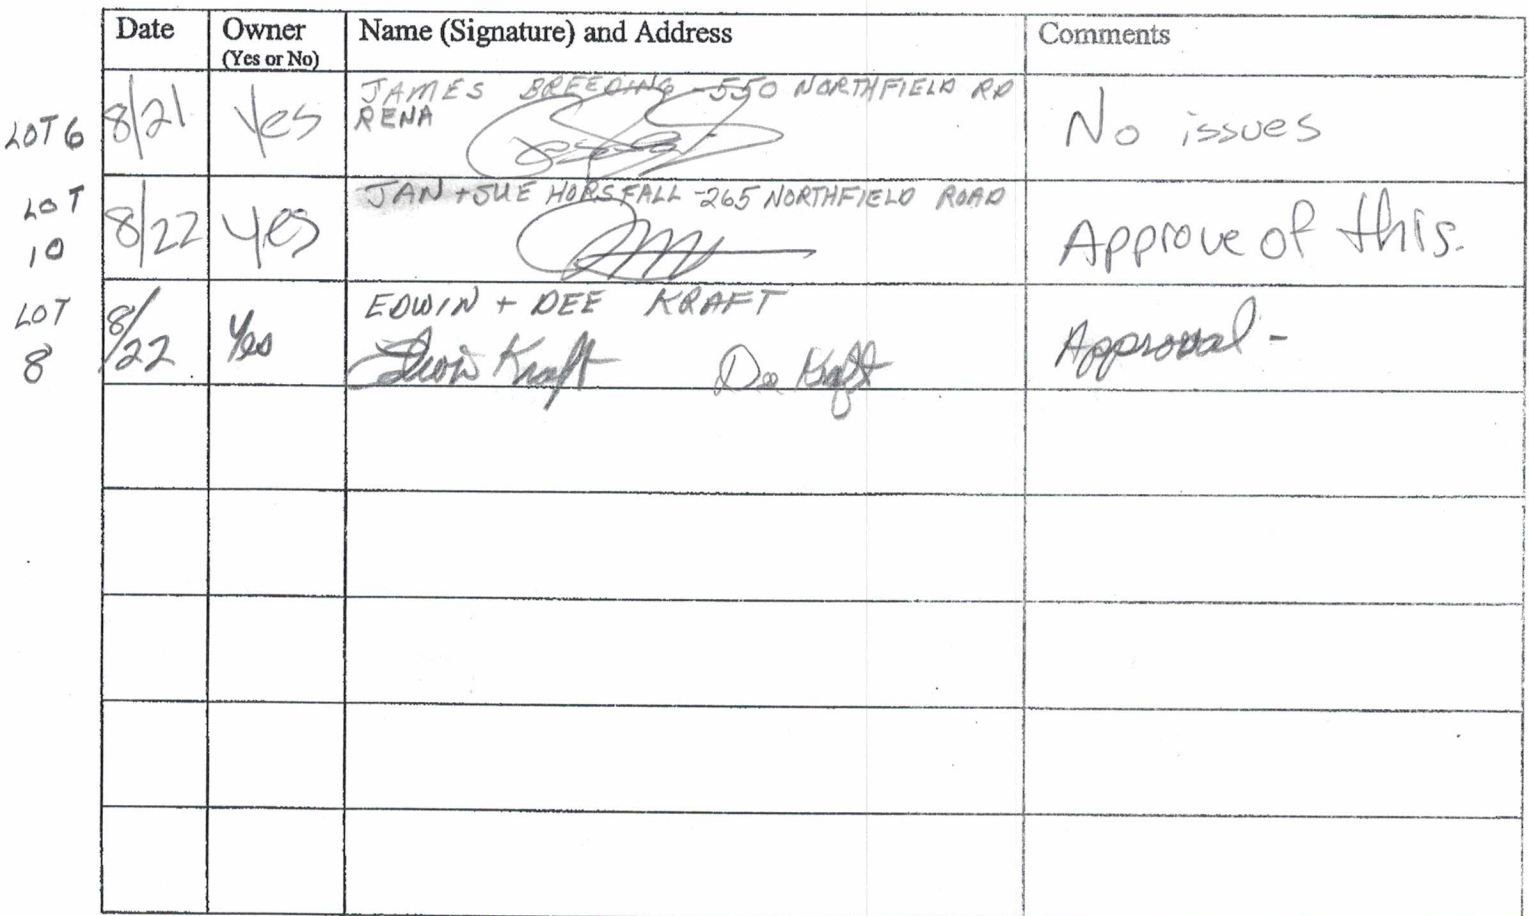 Date Owner Name (Signature) and Address Comments
(Yes or No)
LOT 6 8/21 Yes JAMES BREEDING - 550 NORTHFIELD RD No issues
RENA
LOT 10 8/22 Yes JAN + SUE HORSFALL - 265 NORTHFIELD ROAD Approve of this.
LOT 8 8/22 Yes EDWIN + DEE KRAFT Approval -
Edwin Kraft Dee Kraft